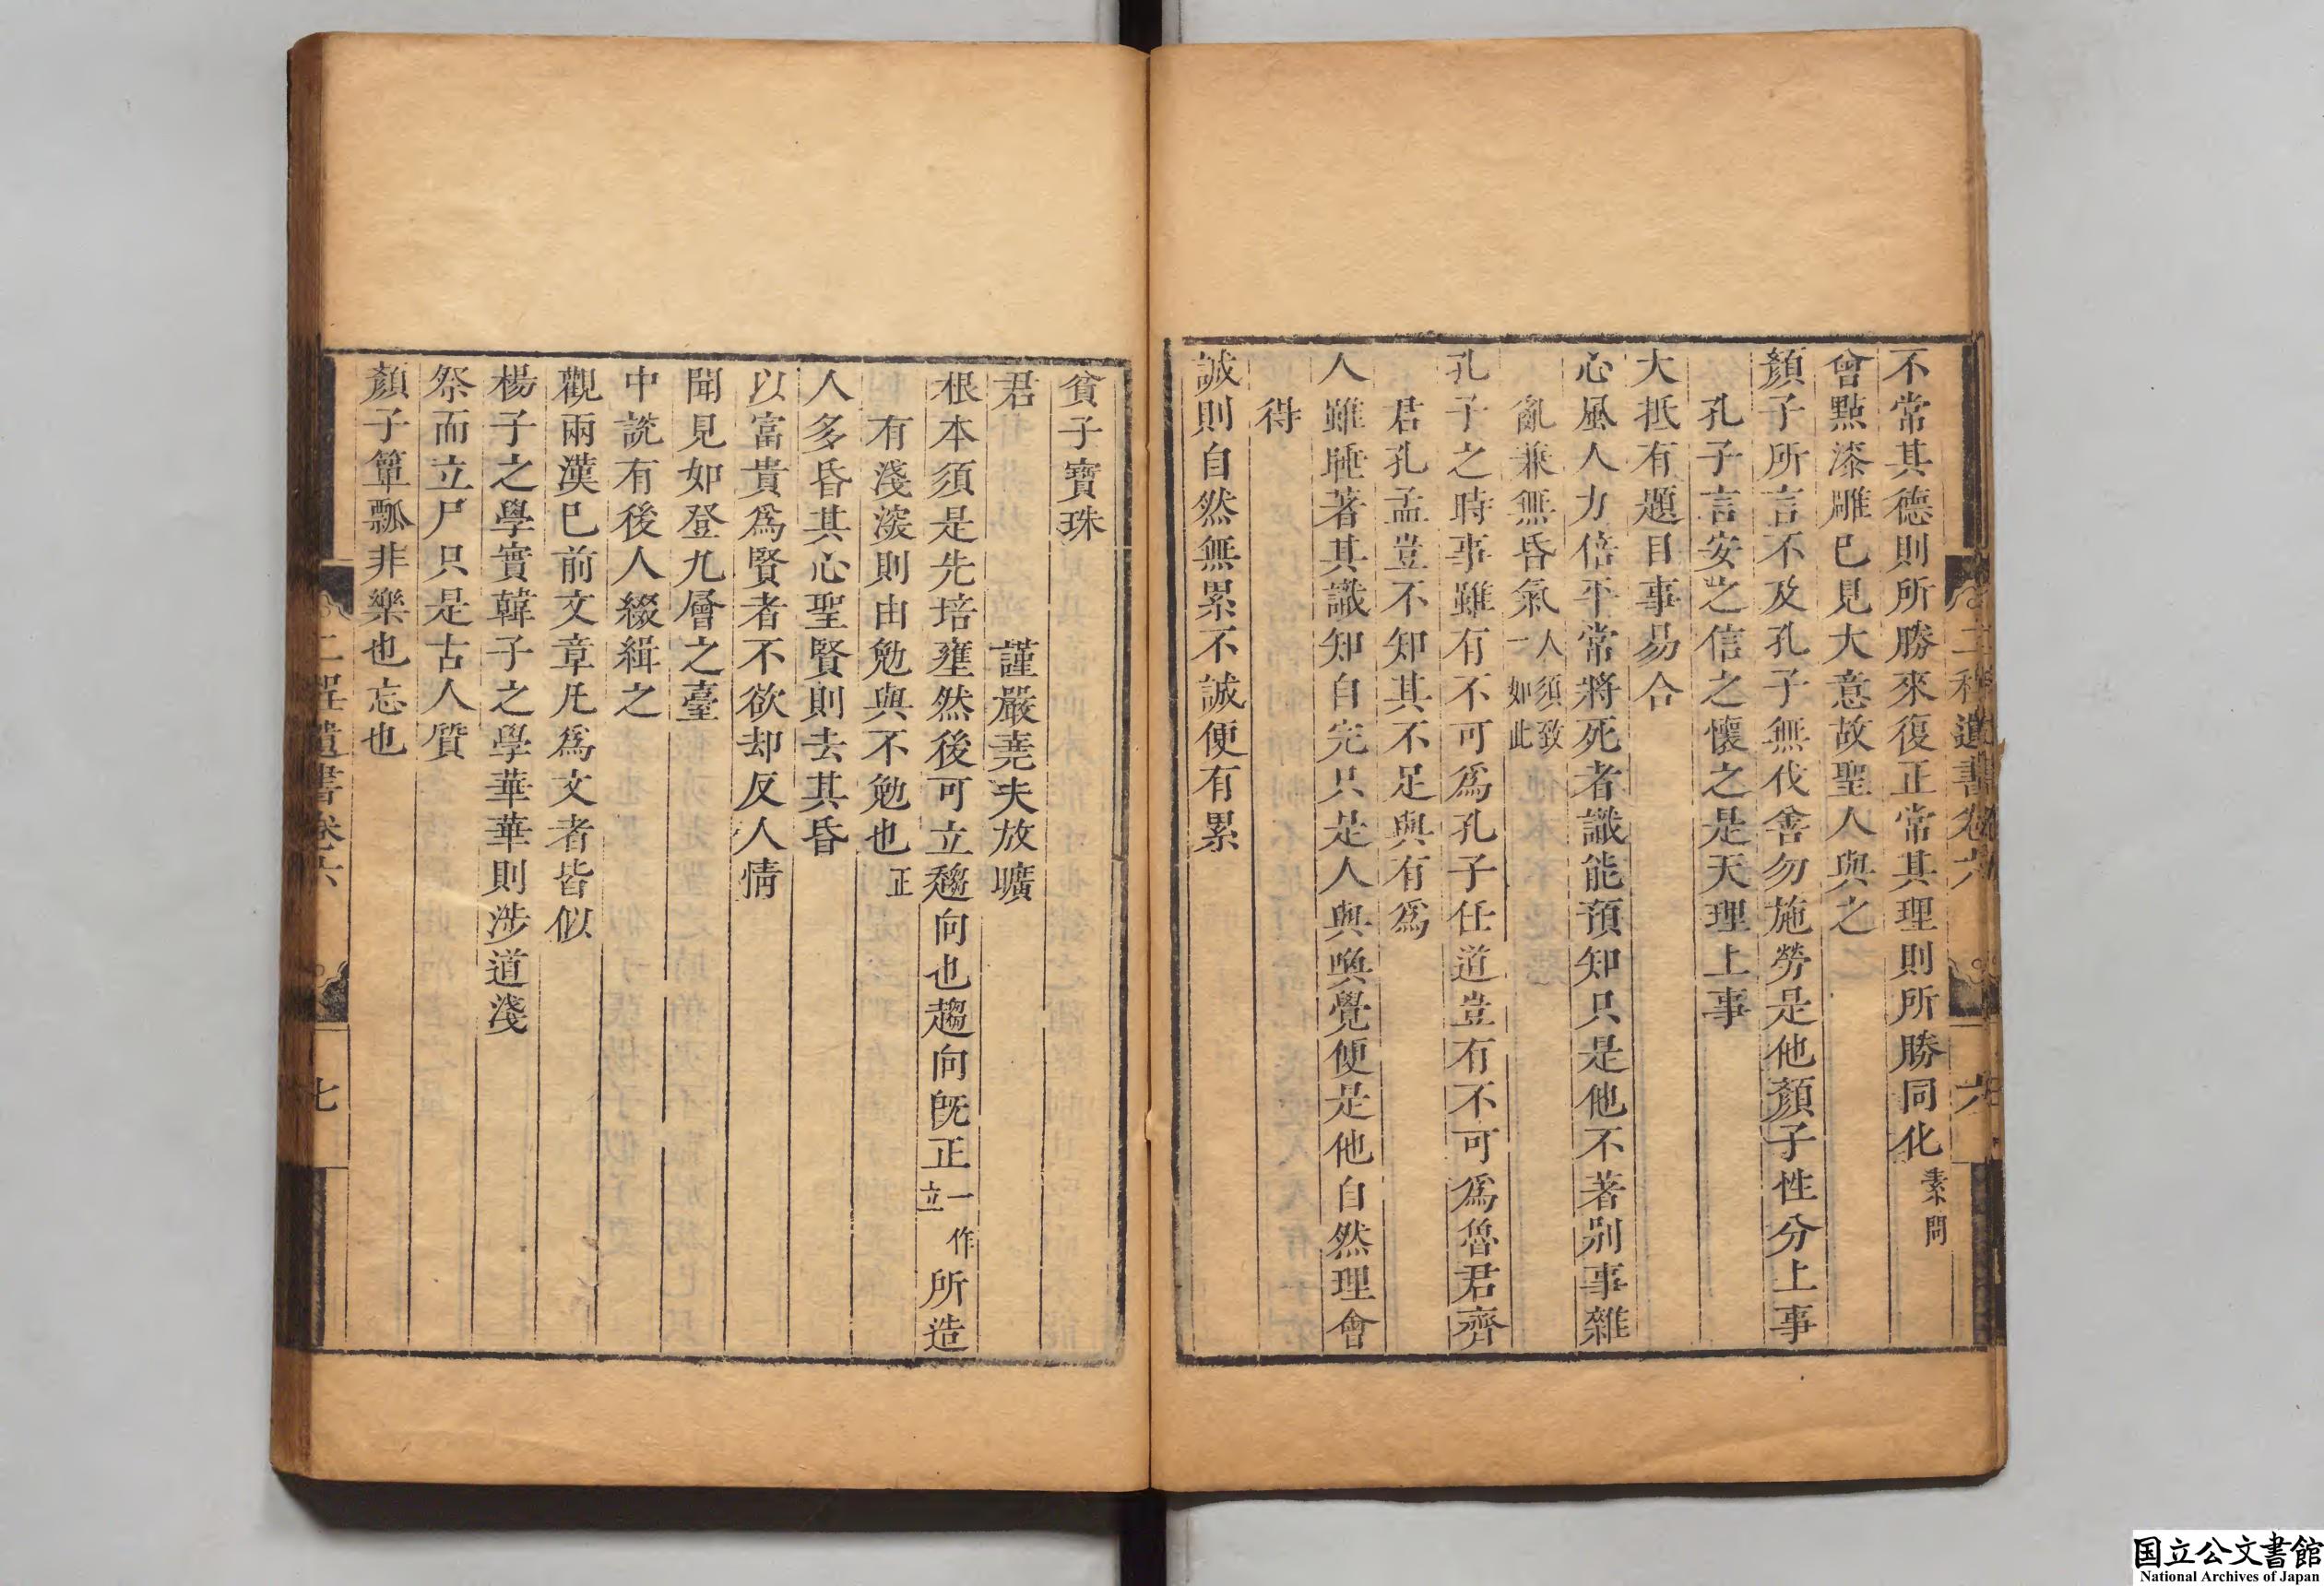 二程遺書卷六 六
不常其德則所勝來復正常其理則所勝同化素問
曾點漆雕已見大意故聖人與之
顏子所言不及孔子無伐善勿施勞是他顏子性分上事
孔子言安之信之懷之是天理上事
大抵有題目事易合
心風人力倍平常將死者識能預知只是他不著別事雜
亂兼無昏氣人須致一如此
孔子之時事雖有不可爲孔子任道豈有不可爲魯君齊
君孔孟豈不知其不足與有爲
人雖睡著其識知自完只是人與喚覺便是他自然理會
得
誠則自然無累不誠便有累
貧子寶珠
君　謹嚴堯夫放曠
根本須是先培壅然後可立趨向也趨向旣正一作立所造
有淺深則由勉與不勉也正
人多昏其心聖賢則去其昏
以富貴爲賢者不欲却反人情
聞見如登九層之臺
中說有後人綴緝之
觀兩漢已前文章凡爲文者皆似
楊子之學實韓子之學華華則涉道淺
祭而立尸只是古人質
顏子簞瓢非樂也忘也
二程遺書卷六 七
国立公文書館
National Archives of Japan